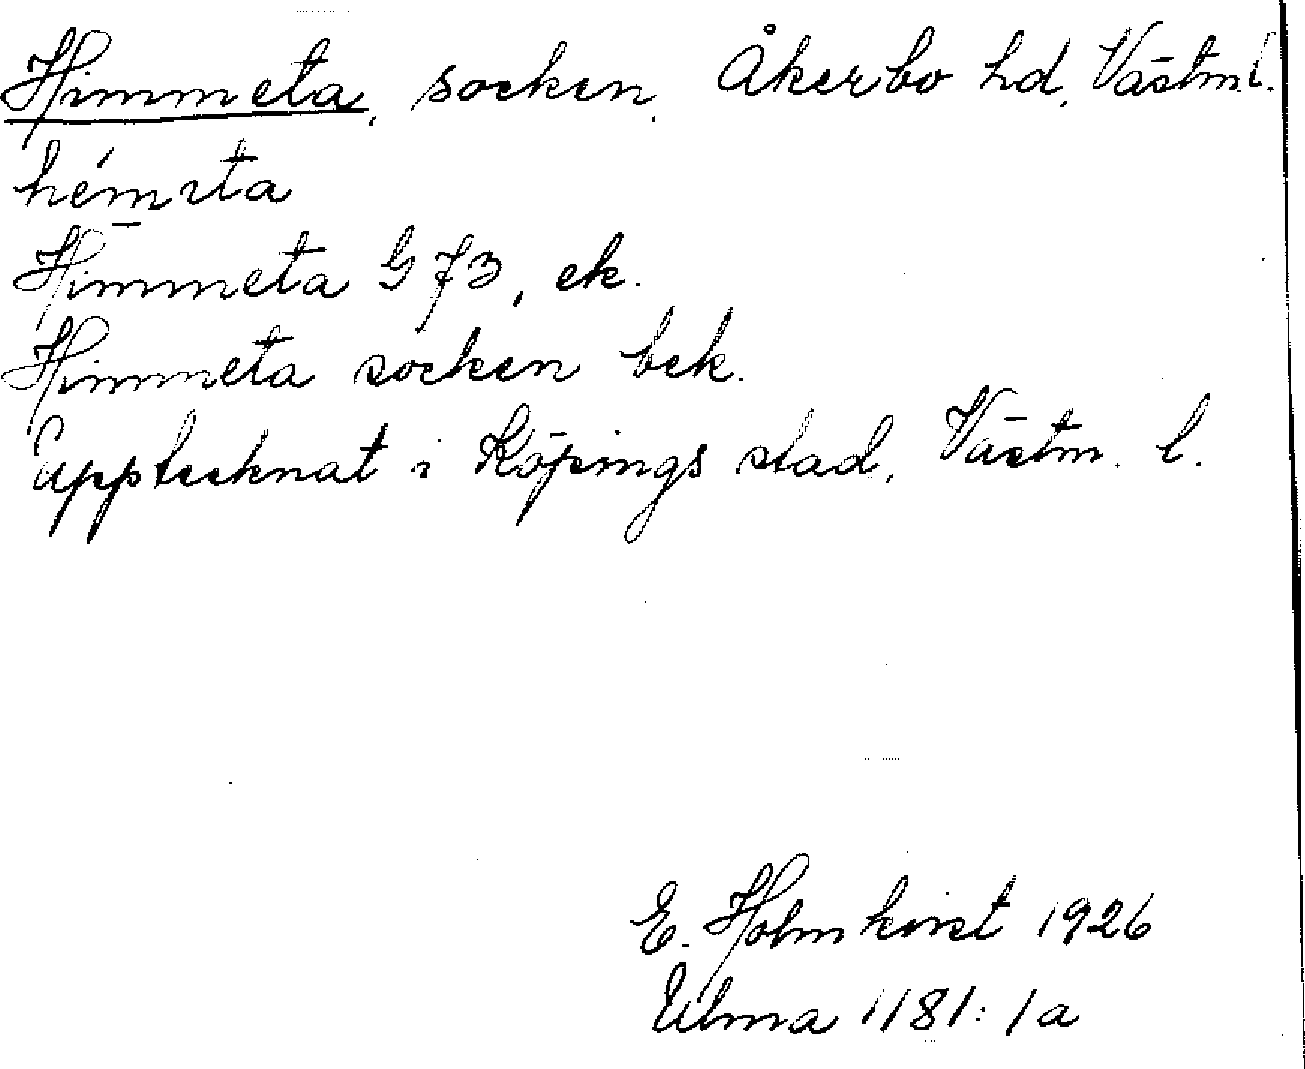 Himmeta, socken, Åkerbo hd, Västm.l.
Himmeta G 73, ek.
Himmeta socken bek.
Upptecknat i Köpings stad, Västm. l.
E. Holmkvist 1926
Ulma 1181:1a